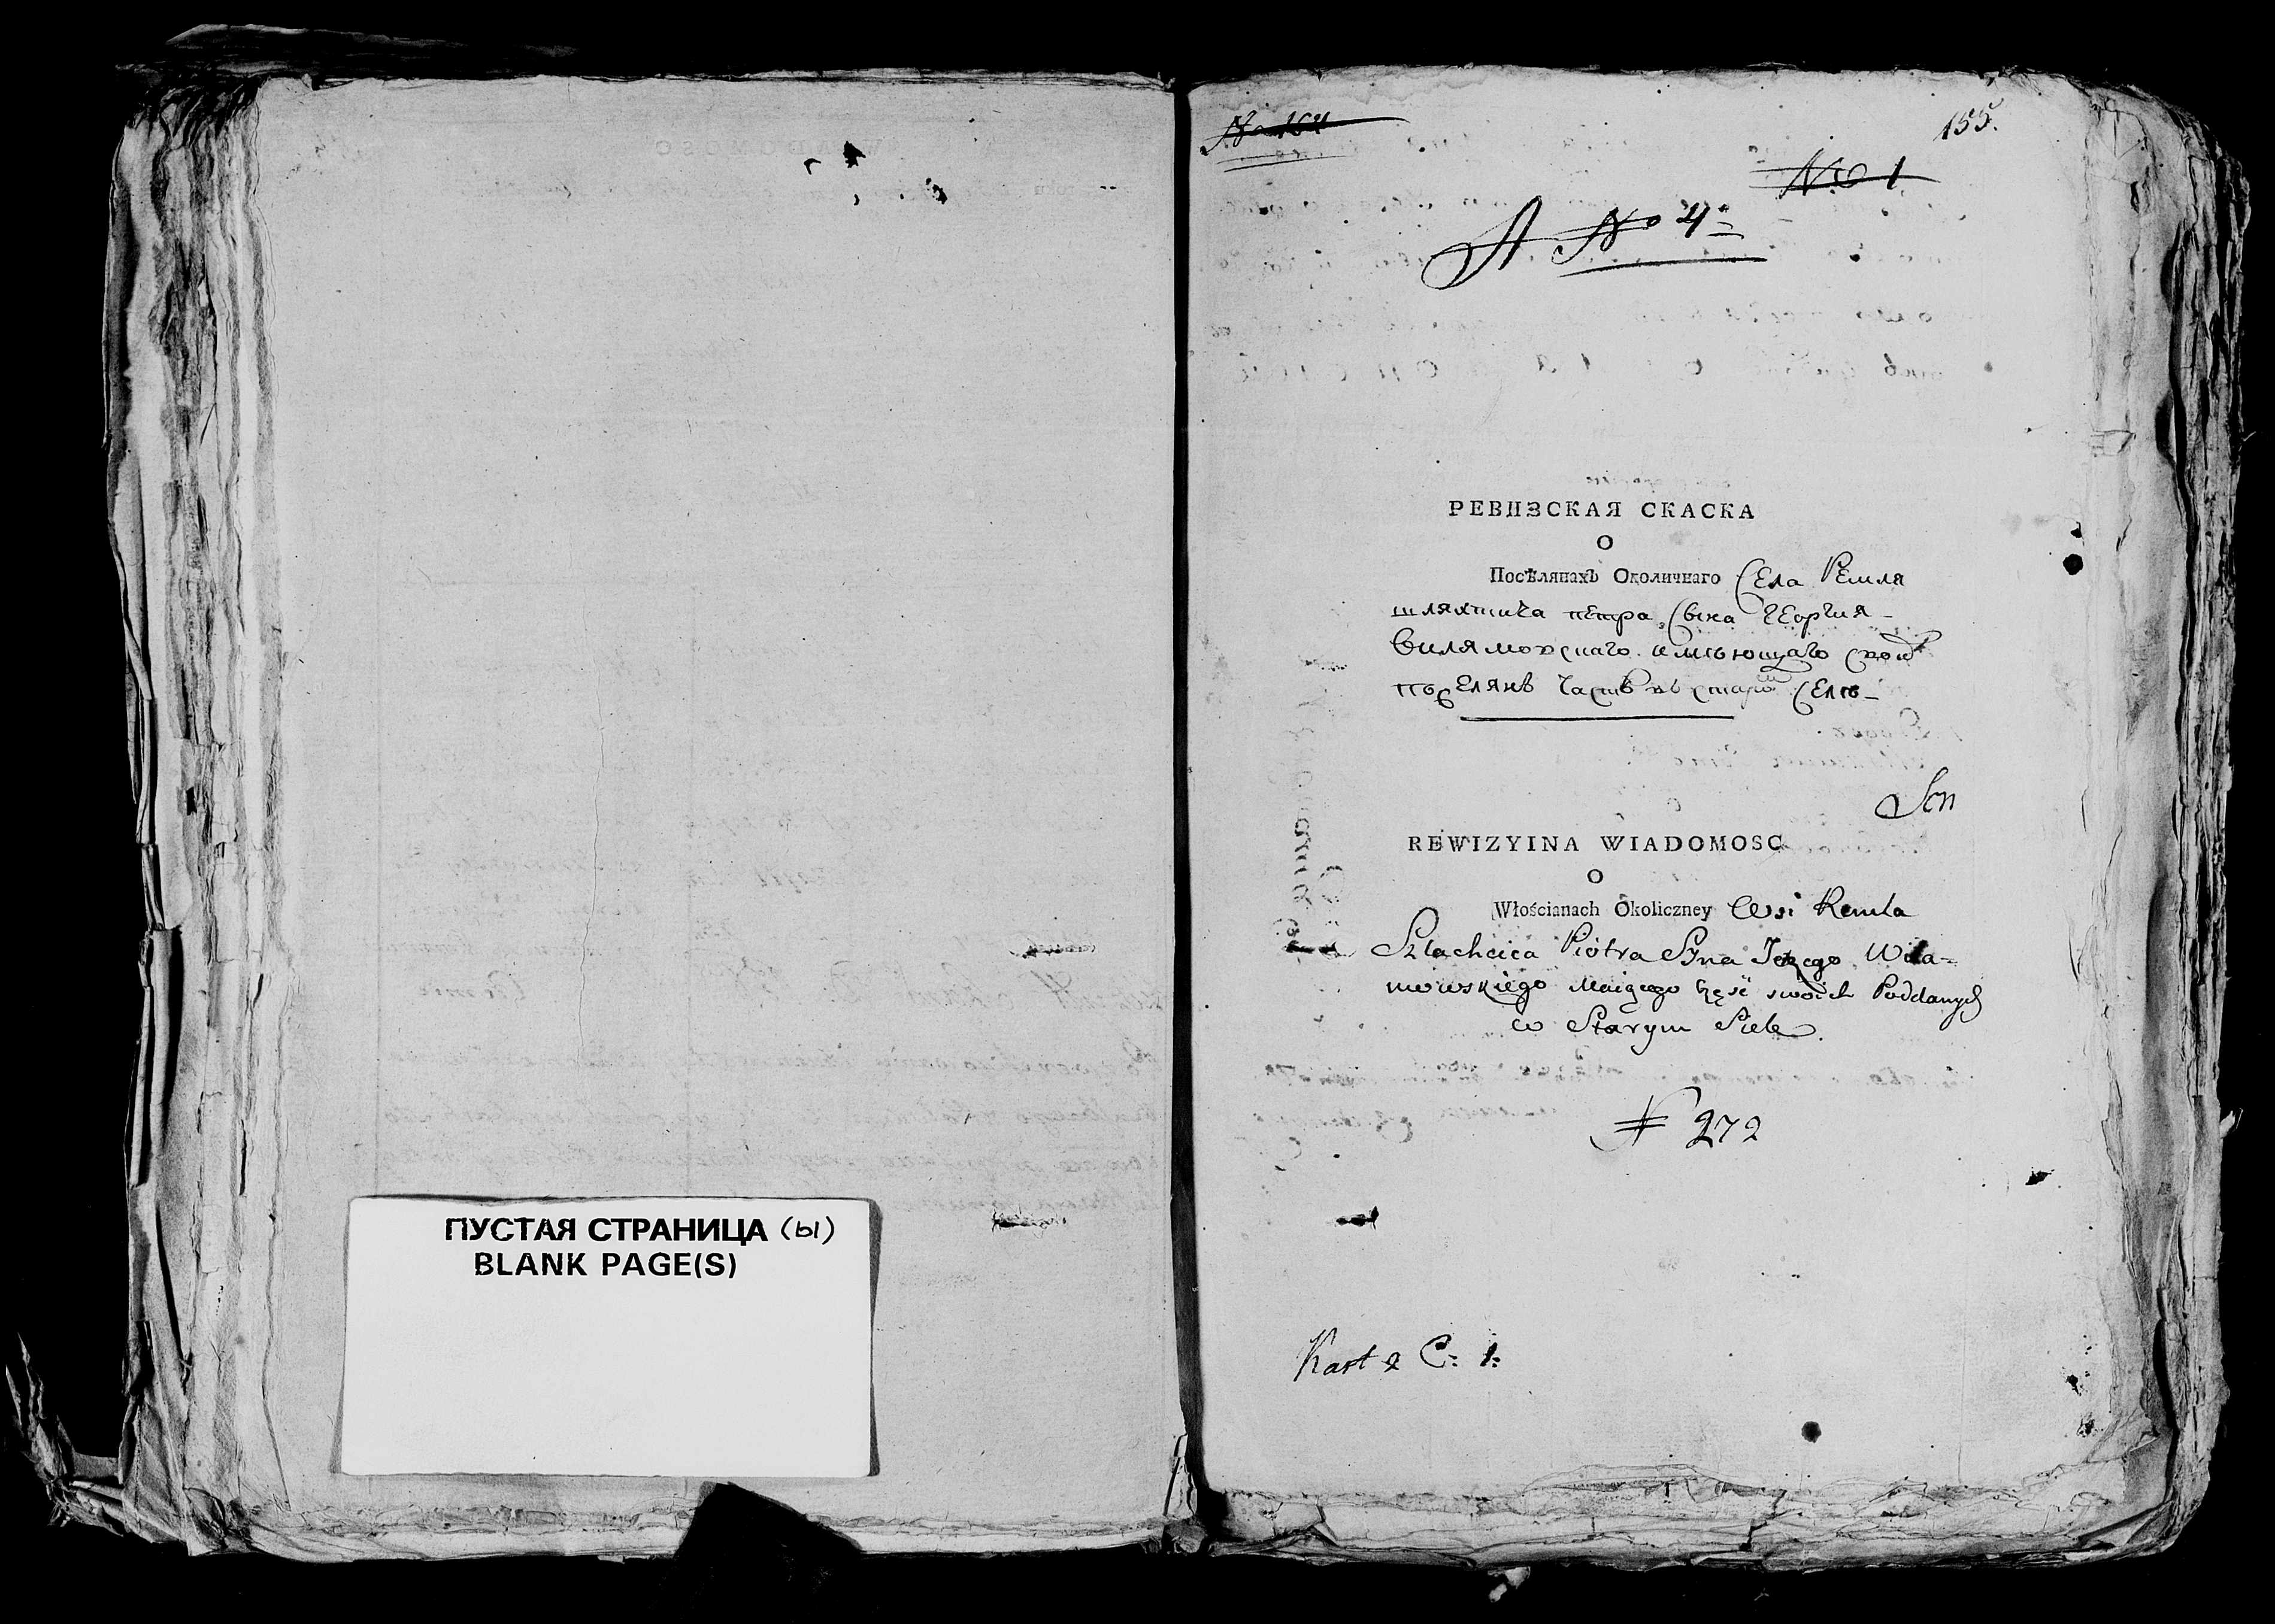 ПУСТАЯ СТРАНИЦА (ы)
BLANK PAGE(S)
No 164
155.
No 1
A No 4
РЕВИЗСКАЯ СКАСКА
О
Посѣлянахъ Околичнаго Села Ремля
шляхтича петра Сына Георгия
Вилямовскаго имѣющаго своихъ
поселянъ часть въ старомъ Селѣ
REWIZYINA WIADOMOSC
O
Włościanach Okoliczney Wsi Remla
Szlachcica Piotra Syna Jerzego Wila=
mowskiego Maiącego część swoich Poddanych
w Starym Siele.
N 272
Kart 2 C: 1: